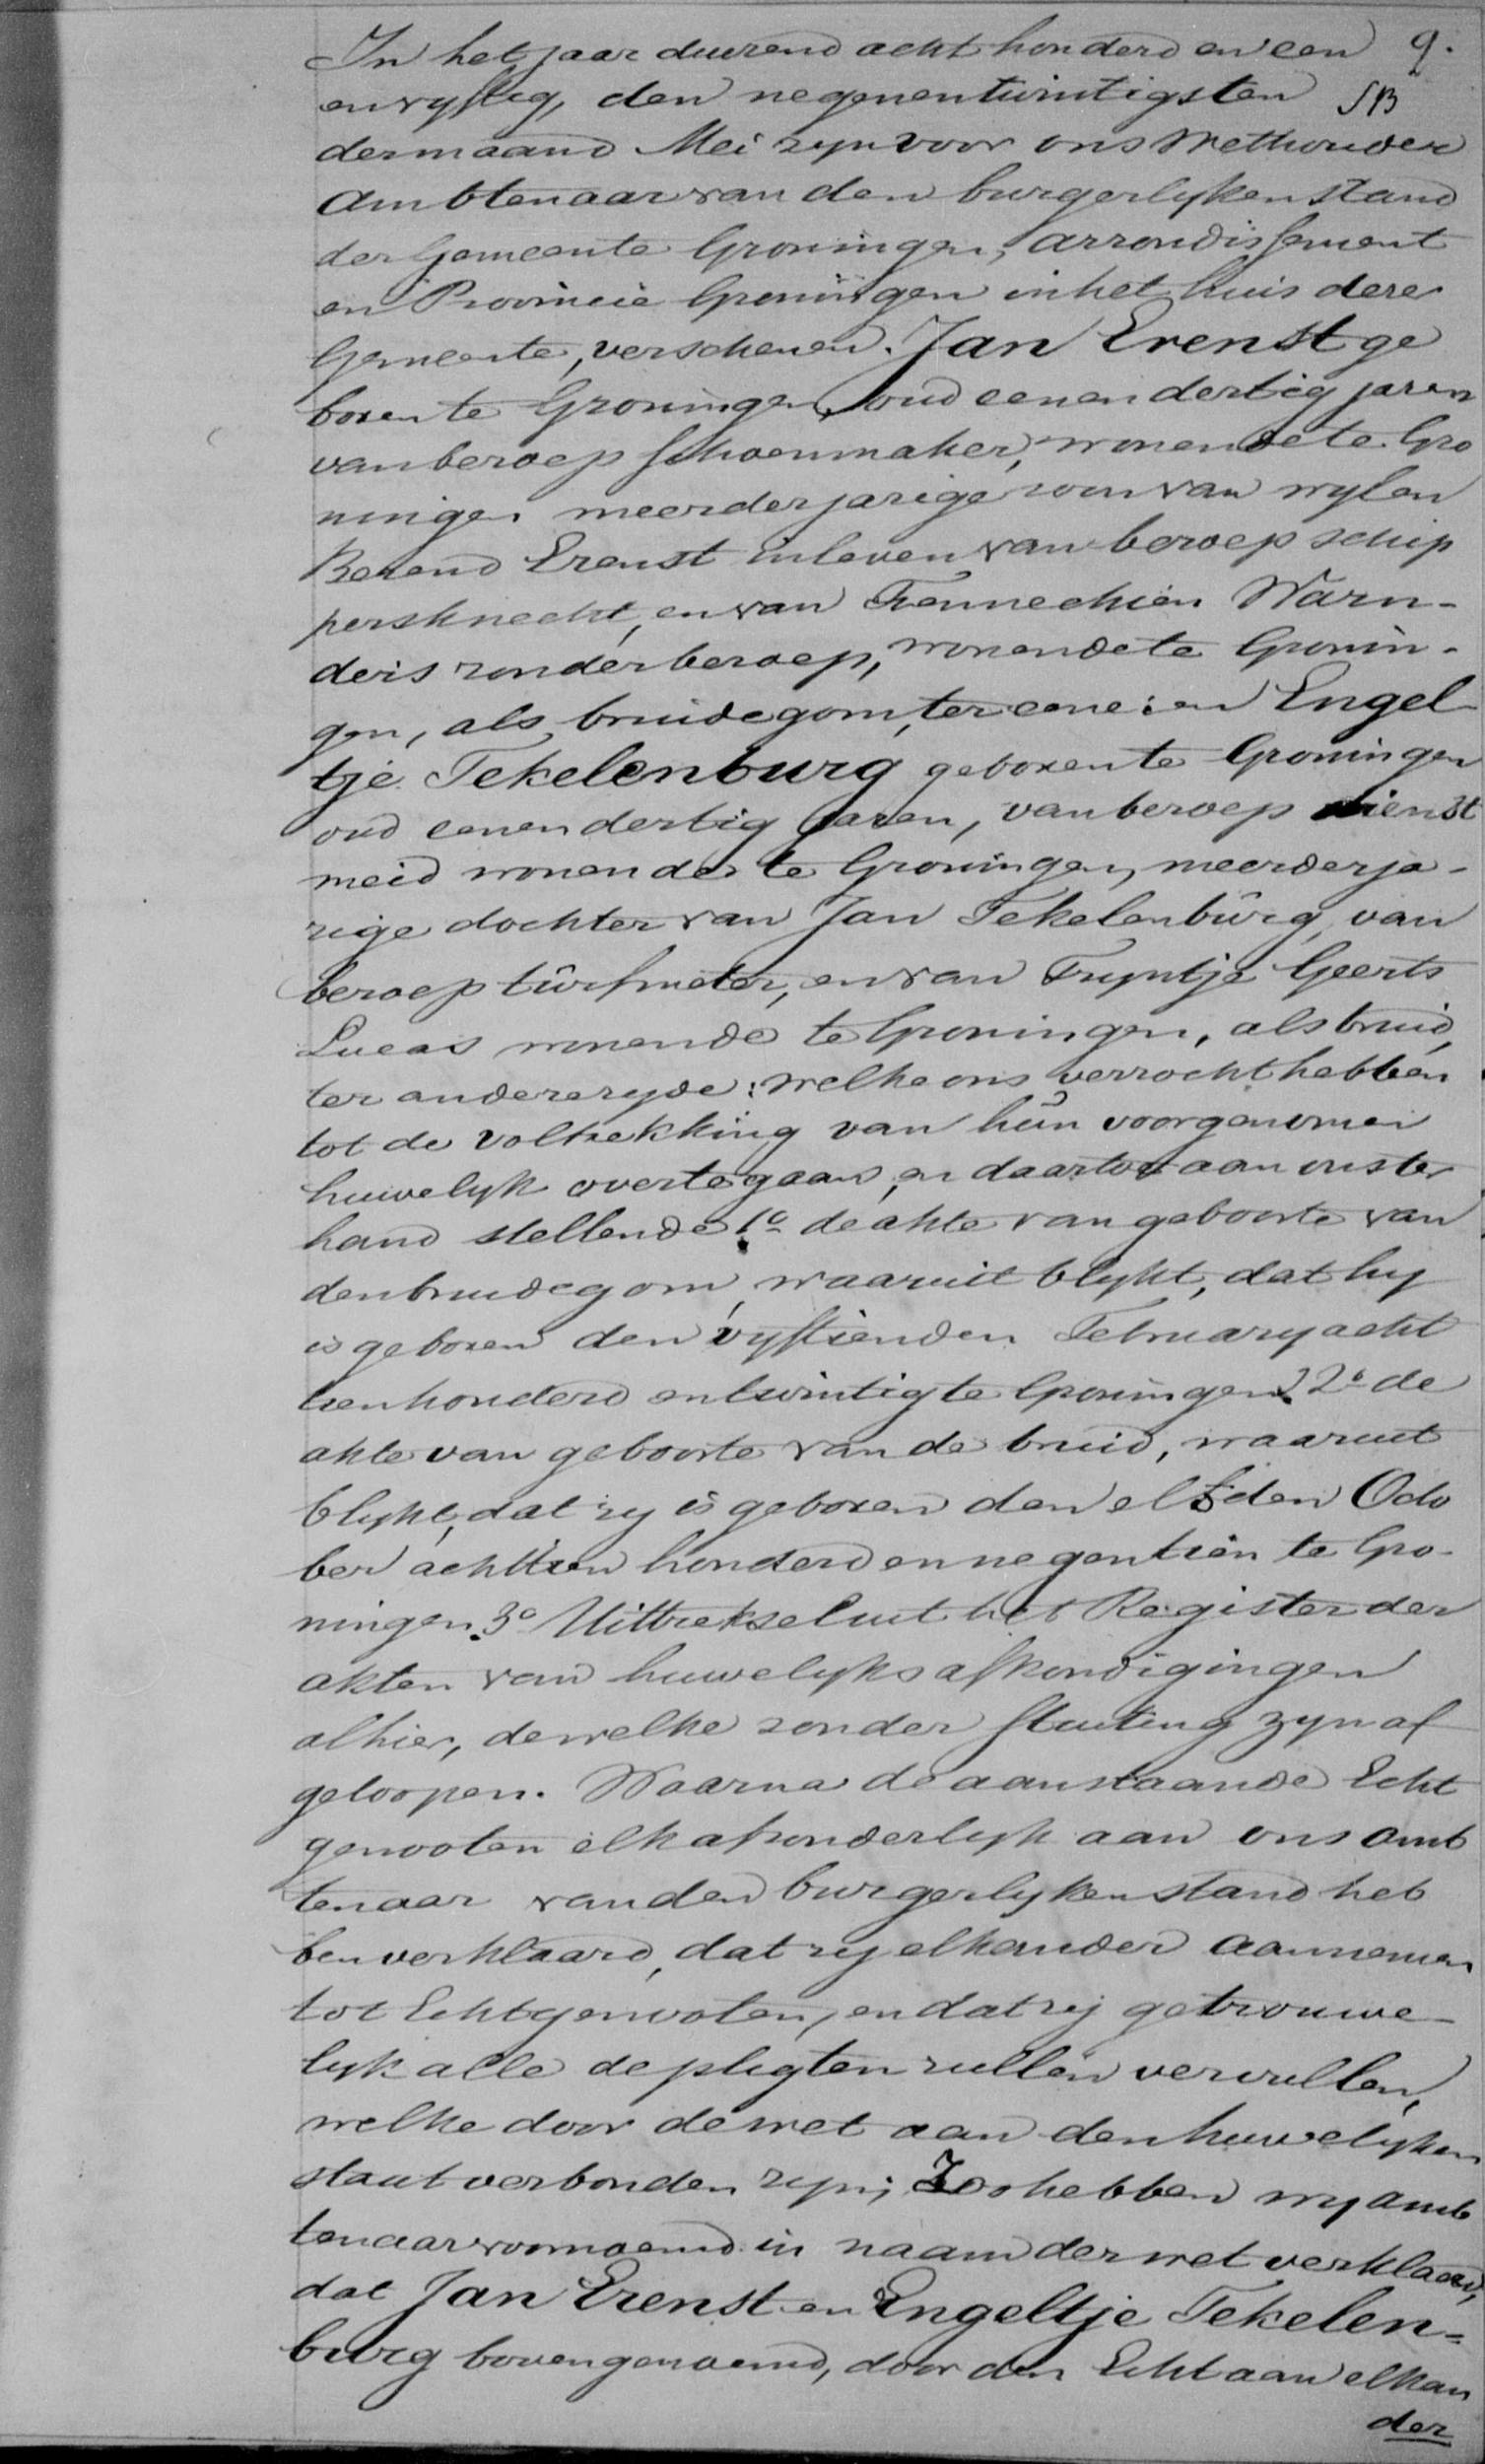 In het jaar duizend acht honderd en een 9.
envyftig, den negenentwintigsten SB
dermaand Mei zyn voor ons Wethouder
Ambtenaar van den burgerlyken stand
der Gemeente Groningen, arrondissement
en Provincie Groningen in het huis dere
Gemeente, verschenen. Jan Erenst ge
boren te Groningen, oud eenendertig jaren
van beroep schoenmaker, wonende te Gro
ningen meerderjarige zoon van wylen
Berend Erenst in leven van beroep schip
persknecht, en van Fennechien Warn-
ders zonder beroep, wonende te Gronin-
gen, als bruidegom, ter eene: en Engel
tje Tekelenburg geboren te Groningen
oud eenendertig jaren, van beroep dienst
meid wonende te Groningen, meerderja-
rige dochter van Jan Tekelenbûrg, van
beroep tûrfmeter, en van Tryntje Geerts
Lucas wonende te Groningen, als bruid,
ter andere zyde: welke ons verzocht hebben
tot de voltrekking van hûn voorgenomen
huwelyk overtegaan, en daartoe aan onster
hand stellende 1o de akte van geboorte van
den bruidegom, waaruit blykt, dat hy
is geboren den vyftienden February acht
tienhonderd entwintig te Groningen. 2o de
akte van geboorte van de bruid, waaruit
blykt, dat zy is geboren den elfden Octo
ber achttien honderd en negentien te Gro-
ningen. 3o Uittreksel uit het Register der
akten van huwelyksafkondigingen
alhier, dewelke zonder stuiting zyn af
geloopen. Waarna de aanstaande Echt
genooten elk afzonderlyk aan ons amb
tenaar van den burgerlyken stand heb
ben verklaard, dat zy elkander aannemen
tot Echtgenooten, en dat zij getrouwe-
lyk alle de pligten zullen vervullen,
welke door de wet aan den huwelyken
staat verbonden zyn; Zoo hebben wy amb
tenaar voornoemd in naam der wet verklaard,
dat Jan Erenst en Engeltje Tekelen=
burg bovengenoemd, door den Echt aan elkan
der